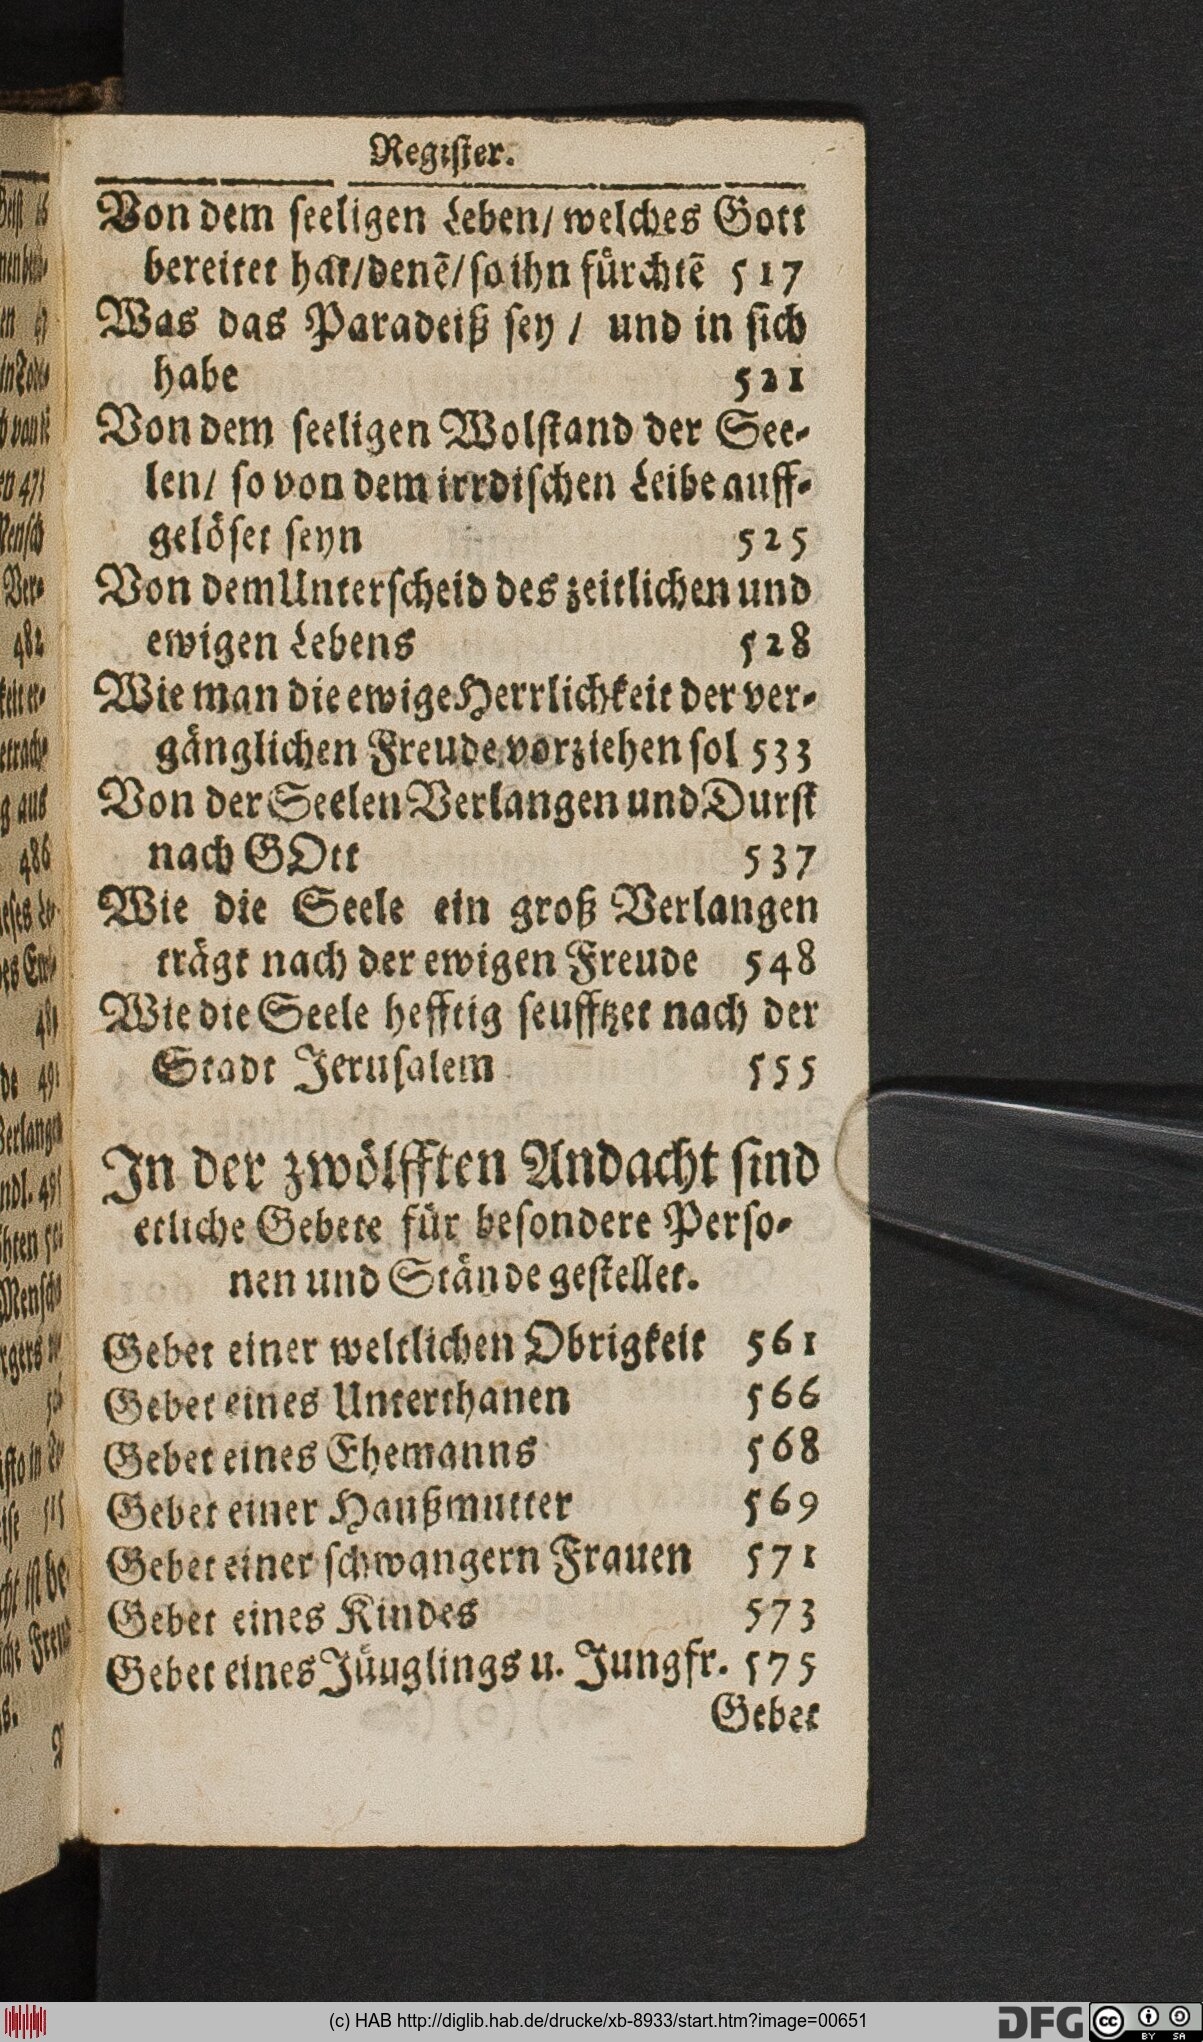 Register.
Von dem seeligen Leben/ welches Gott
bereitet hat/denē/so ihn fürchtē 517
Was das Paradeiß sey / und in sich
habe 521
Von dem seeligen Wolstand der See-
len/ so von dem irrdischen Leibe auff-
gelöset seyn 525
Von dem Unterscheid des zeitlichen und
ewigen Lebens 528
Wie man die ewige Herrlichkeit der ver-
gänglichen Freude vorziehen sol 533
Von der Seelen Verlangen und Durst
nach GOtt 537
Wie die Seele ein groß Verlangen
trägt nach der ewigen Freude 548
Wie die Seele hefftig seufftzet nach der
Stadt Jerusalem 555
In der zwölfften Andacht sind
etliche Gebete für besondere Perso-
nen und Stände gestellet.
Gebet einer weltlichen Obrigkeit 561
Gebet eines Unterthanen 566
Gebet eines Ehemanns 568
Gebet einer Haußmutter 569
Gebet einer schwangern Frauen 571
Gebet eines Kindes 573
Gebet eines Jüuglings u. Jungfr. 575
Gebet
(c) HAB http://diglib.hab.de/drucke/xb-8933/start.htm?image=00651
DFG cc BY SA